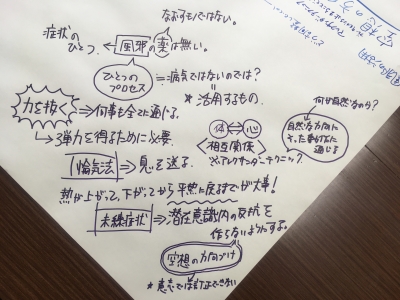 なおすものではない。
症状の
ひとつ。
風邪の薬は無い。
ひとつの
プロセス
＝病気ではないのでは？
＊活用するもの。
力を抜く
⇒何事も全てに通じる。
↳弾力を得るために必要。
体⇔心
＜相互関係＞
アレクサンダーテクニック
何が自然なのか？
自然な方向に
通じる
愉気法⇒息を送る。
熱が上がって、下がってから平熱に戻るまでが大事！
未練症状⇒潜在意識内の反抗を
作らないようにする。
空想の方向づけ
＊意志では訂正できない